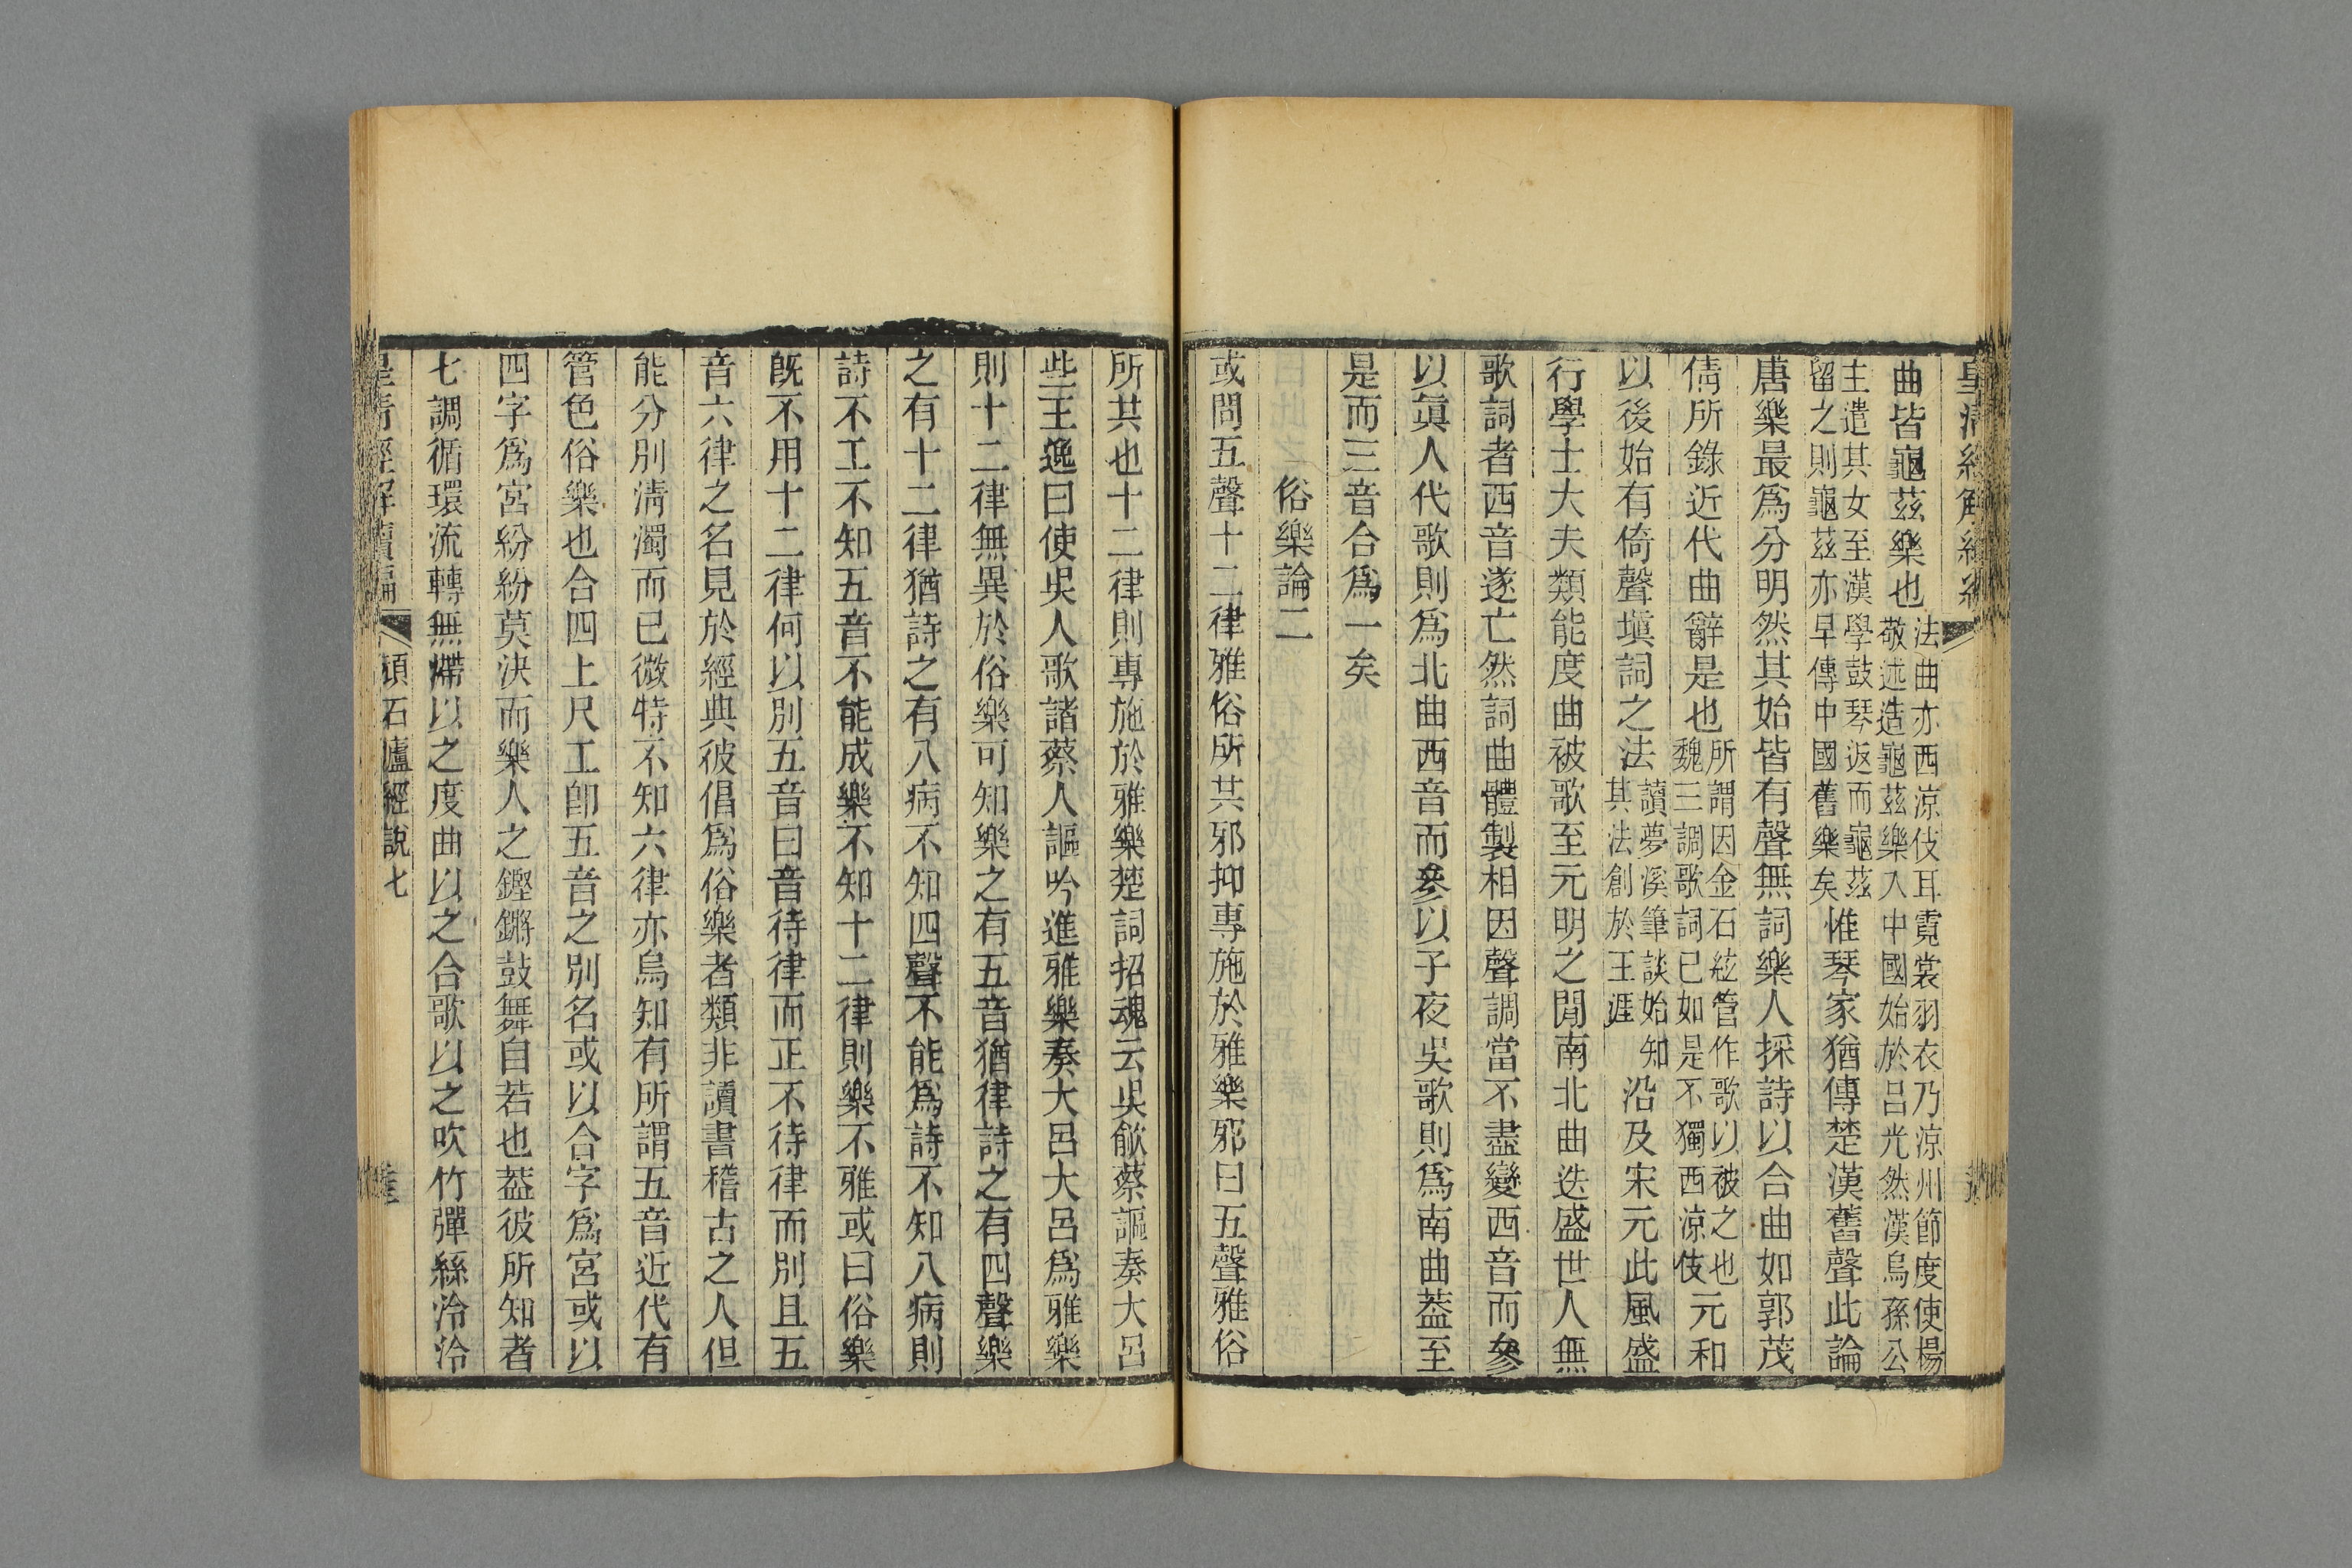 曲皆龜茲樂也法曲亦西涼伎耳霓裳羽衣乃涼州節度使楊敬述造龜茲樂入中國始於呂光然漢烏孫公
主遣其女至漢學鼓琴返而龜茲留之則龜茲亦早傳中國舊樂矣惟琴家猶傳楚漢舊聲此論
唐樂最爲分明然其始皆有聲無詞樂人採詩以合曲如郭茂
倩所錄近代曲辭是也所謂因金石絃管作歌以被之也魏三調歌詞已如是不獨西涼伎元和
以後始有倚聲塡詞之法讀夢溪筆談始知其法創於王涯沿及宋元此風盛
行學士大夫類能度曲被歌至元明之閒南北曲迭盛世人無
歌詞者西音遂亡然詞曲體製相因聲調當不盡變西音而參
以眞人代歌則爲北曲西音而參以子夜吳歌則爲南曲蓋至
是而三音合爲一矣
俗樂論二
或問五聲十二律雅俗所共邪抑專施於雅樂邪曰五聲雅俗
所共也十二律則專施於雅樂楚詞招魂云吳歈蔡謳奏大呂
些王逸曰使吳人歌諸蔡人謳吟進雅樂奏大呂大呂爲雅樂
則十二律無異於俗樂可知樂之有五音猶律詩之有四聲樂
之有十二律猶詩之有八病不知四聲不能爲詩不知八病則
詩不工不知五音不能成樂不知十二律則樂不雅或曰俗樂
旣不用十二律何以別五音曰音待律而正不待律而別且五
音六律之名見於經典彼倡爲俗樂者類非讀書稽古之人但
能分別淸濁而已微特不知六律亦烏知有所謂五音近代有
管色俗樂也合四上尺工卽五音之別名或以合字爲宮或以
四字爲宮紛紛莫決而樂人之鏗鏘鼓舞自若也蓋彼所知者
七調循環流轉無㴉以之度曲以之合歌以之吹竹彈絲泠泠
皇淸經解續編 頑石廬經說七